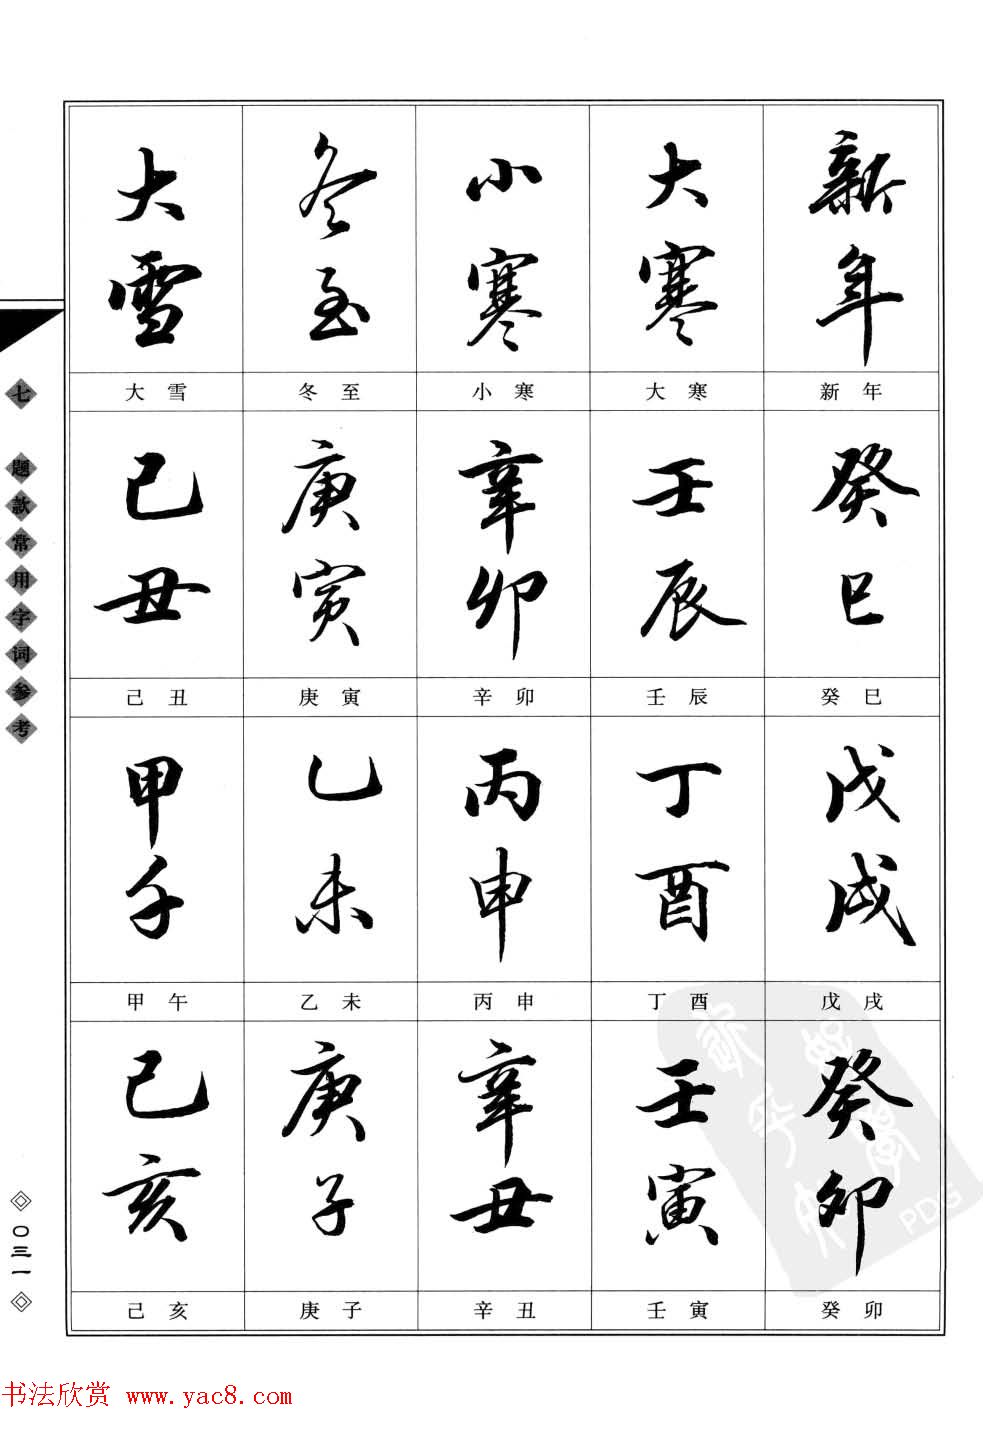 大雪 冬至 小寒 大寒 新年
大雪 冬至 小寒 大寒 新年
己丑 庚寅 辛卯 壬辰 癸巳
己丑 庚寅 辛卯 壬辰 癸巳
甲午 乙未 丙申 丁酉 戊戌
甲午 乙未 丙申 丁酉 戊戌
己亥 庚子 辛丑 壬寅 癸卯
己亥 庚子 辛丑 壬寅 癸卯
七 题款常用字词参考
〇三一
PDG
书法欣赏 www.yac8.com